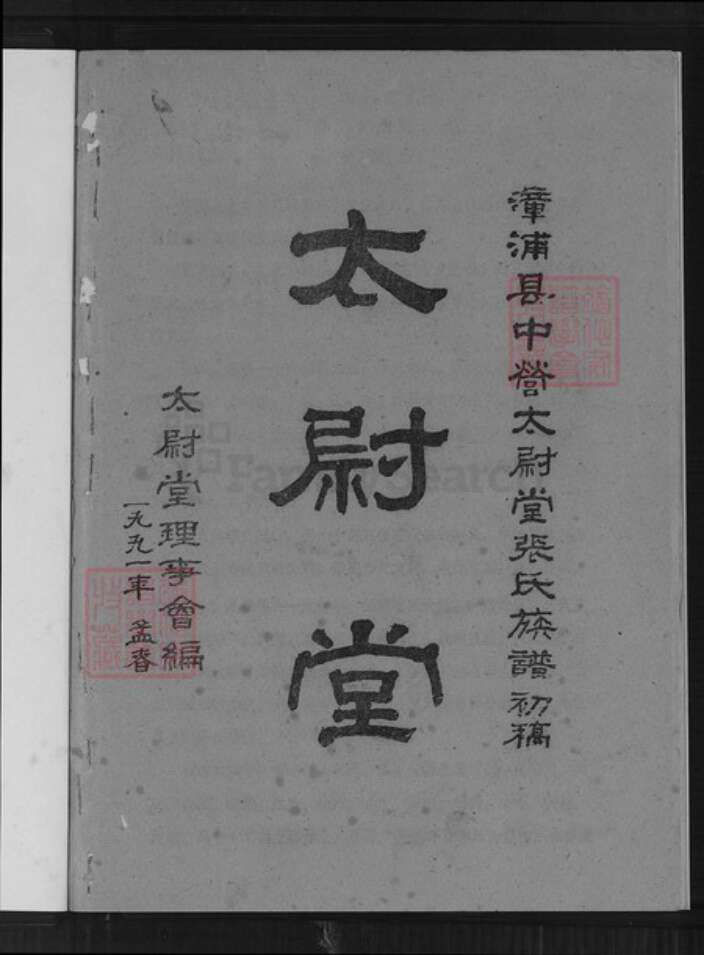 漳浦县中營太尉堂張氏族譜初稿
太尉堂
太尉堂理事會編
一九九一年孟春